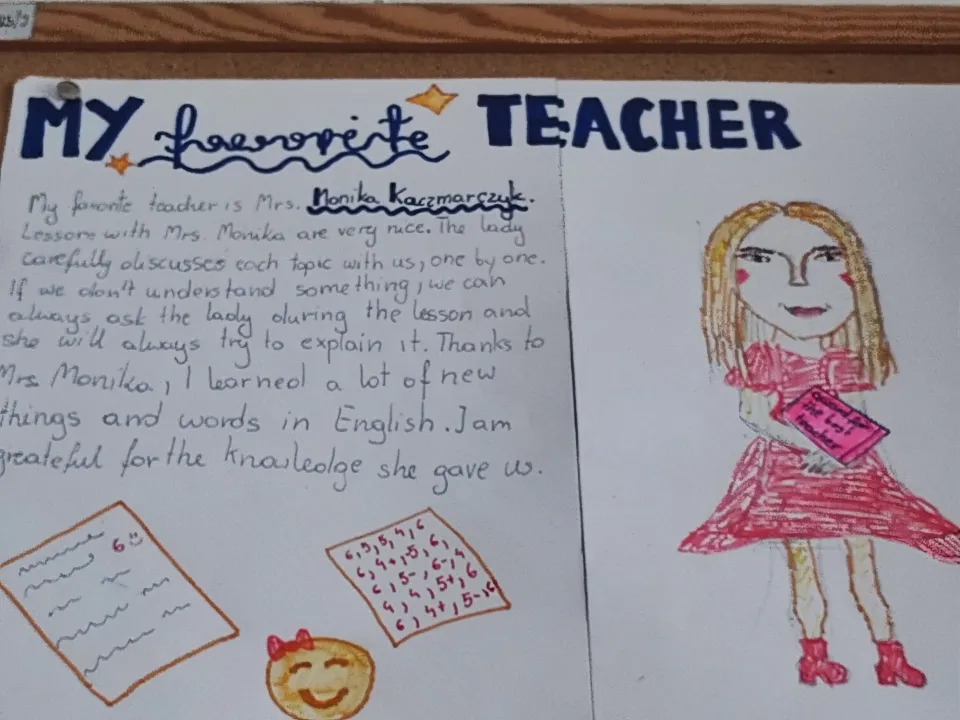 MY favorite TEACHER
My favorite teacher is Mrs. Monika Kaczmarczyk.
Lessons with Mrs. Monika are very nice. The lady
carefully discusses each topic with us, one by one.
If we don't understand something, we can
always ask the lady during the lesson and
she will always try to explain it. Thanks to
Mrs. Monika, I learned a lot of new
things and words in English. I am
greateful for the knowledge she gave us.
the best
teacher
6
6, 5, 5, 4, 6
6, 4+, 5, 6,
6, 5-, 6-, 4
4, 4, 5+, 6
6, 4+, 5-, 6